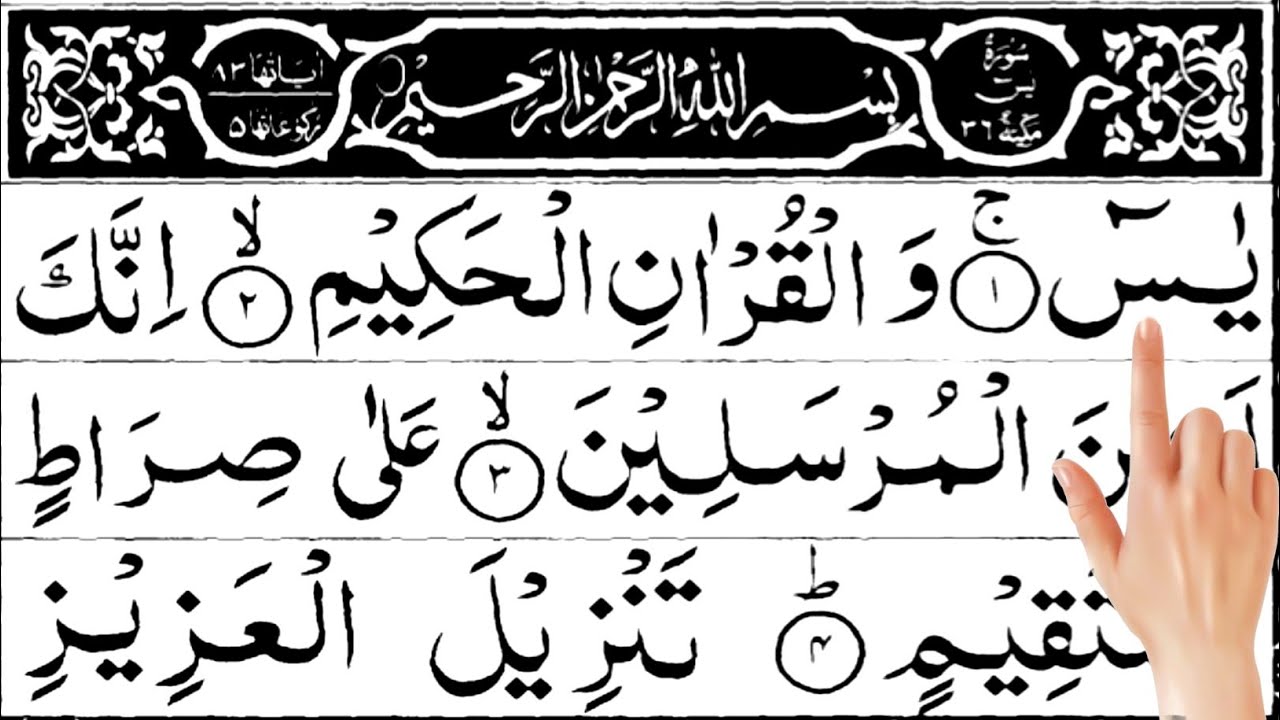 سُورَةُ يٰسٓ مَكِّيَّةٌ ٣٦
بِسْمِ اللّٰهِ الرَّحْمٰنِ الرَّحِيْمِ
اٰيَاتُهَا ٨٣
رُكُوْعَاتُهَا ٥
يٰسٓ ۚ ﴿۱﴾ وَ الْقُرْاٰنِ الْحَكِيْمِ ۙ ﴿۲﴾ اِنَّكَ
الْمُرْسَلِيْنَ ۙ ﴿۳﴾ عَلٰى صِرَاطٍ
﴿۴﴾ ؕ تَنْزِيْلَ الْعَزِيْزِ